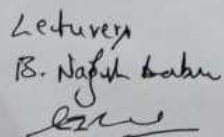 Lecturers
B. Nagesh babu